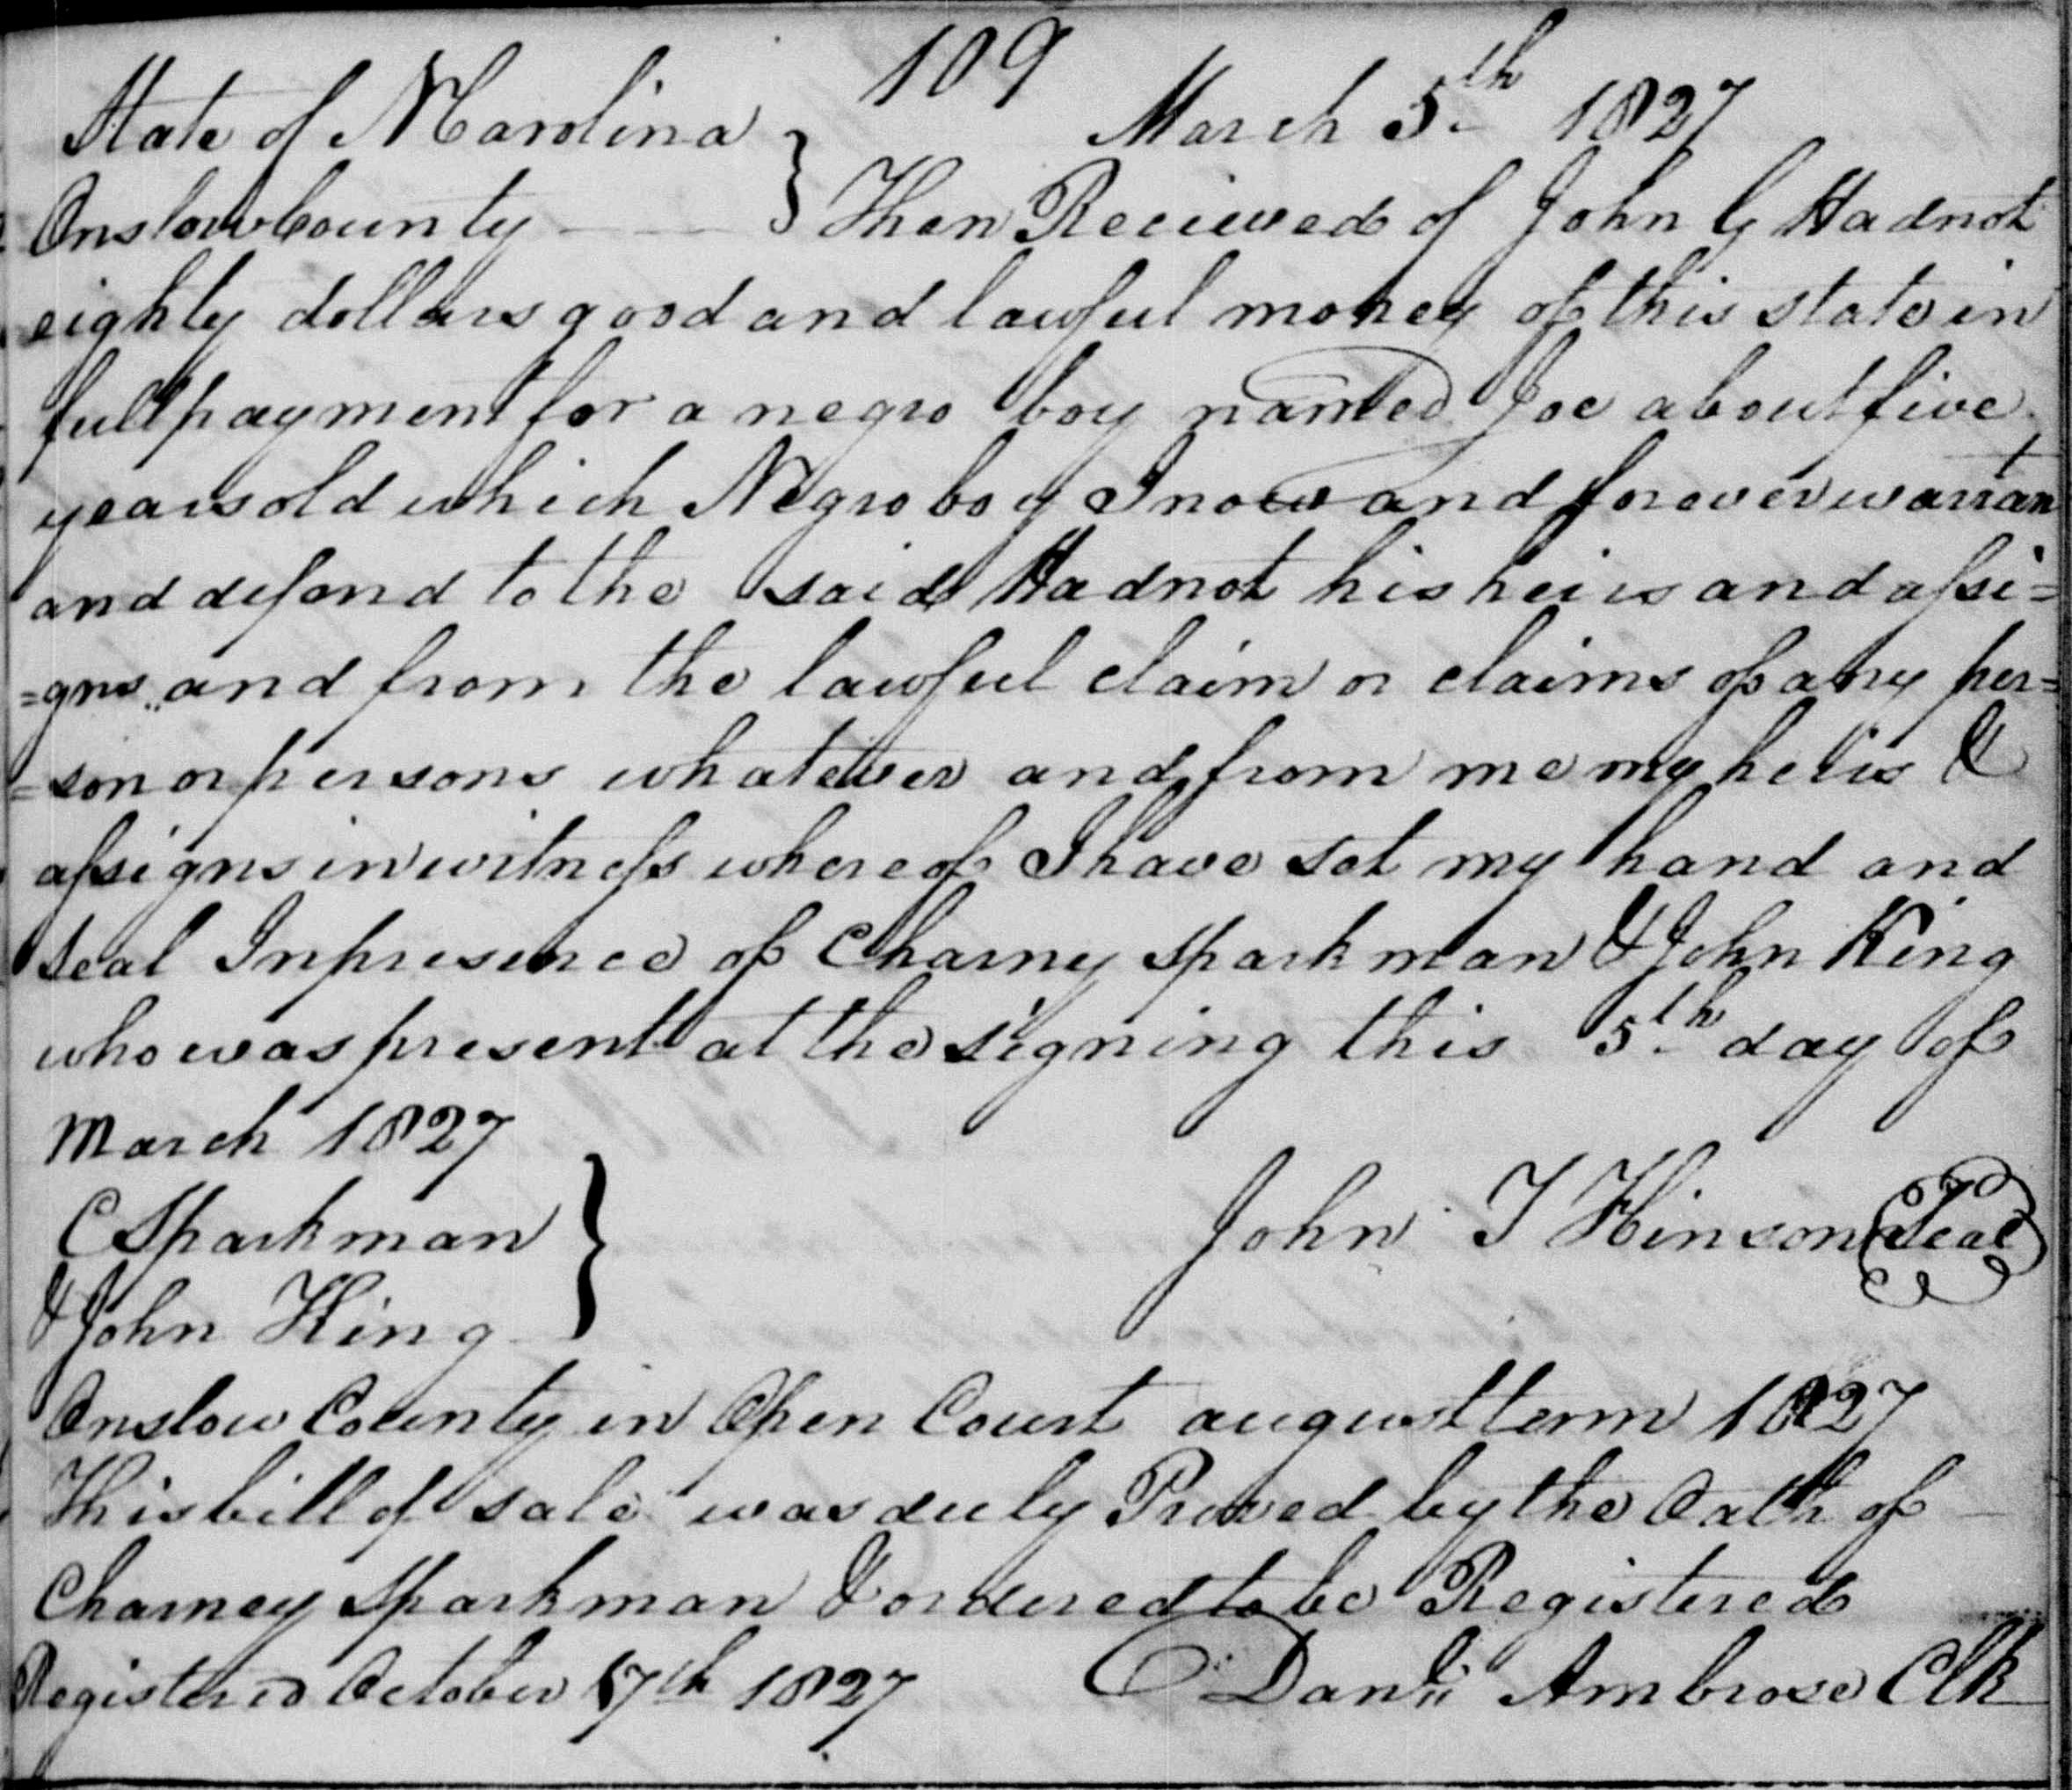 109
State of N Carolina } March 5th 1827
Onslow County } Then Recieved of John G Hadnot
eighty dollars good and lawful money of this state in
full payment for a negro boy named Joe about five
years old which Negro boy I now and forever warrant
and defend to the said Hadnot his heirs and assi=
=gns and from the lawful claim or claims of any per=
=son or persons whatever and from me my heirs &
assigns in witness whereof I have set my hand and
seal In presence of Charney Sparkman & John King
who was present at the signing this 5th day of
March 1827
C Sparkman } John T Hinson Seal
& John King
Onslow County in Open Court august term 1827
This bill of sale was duly Proved by the Oath of
Charney Sparkman & ordered to be Registered
Registered October 17th 1827 Danl Ambrose Clk